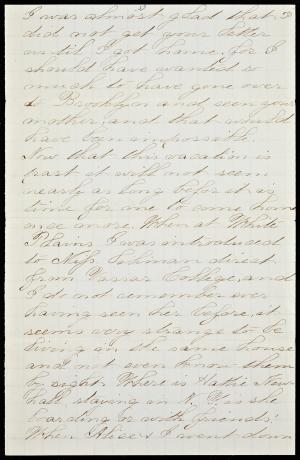 3
I was almost glad that I
did not get your letter
until I got home, for I
should have wanted so
much to have gone over
to Brooklyn and seen your
mother and that would
have been impossible.
Now that this vacation is
past it will not seem
nearly as long before it is
time for me to come home
once more. When at White
Plains, I was introduced
to Miss direct
from Vassar College, and
I do not remember ever
having seen her before, it
seems very strange to be
living in the same house
and not even know them
by sight. Where is Hattie New-
hall staying in N. Y. is she
boarding or with friends?
When Alice & I went down